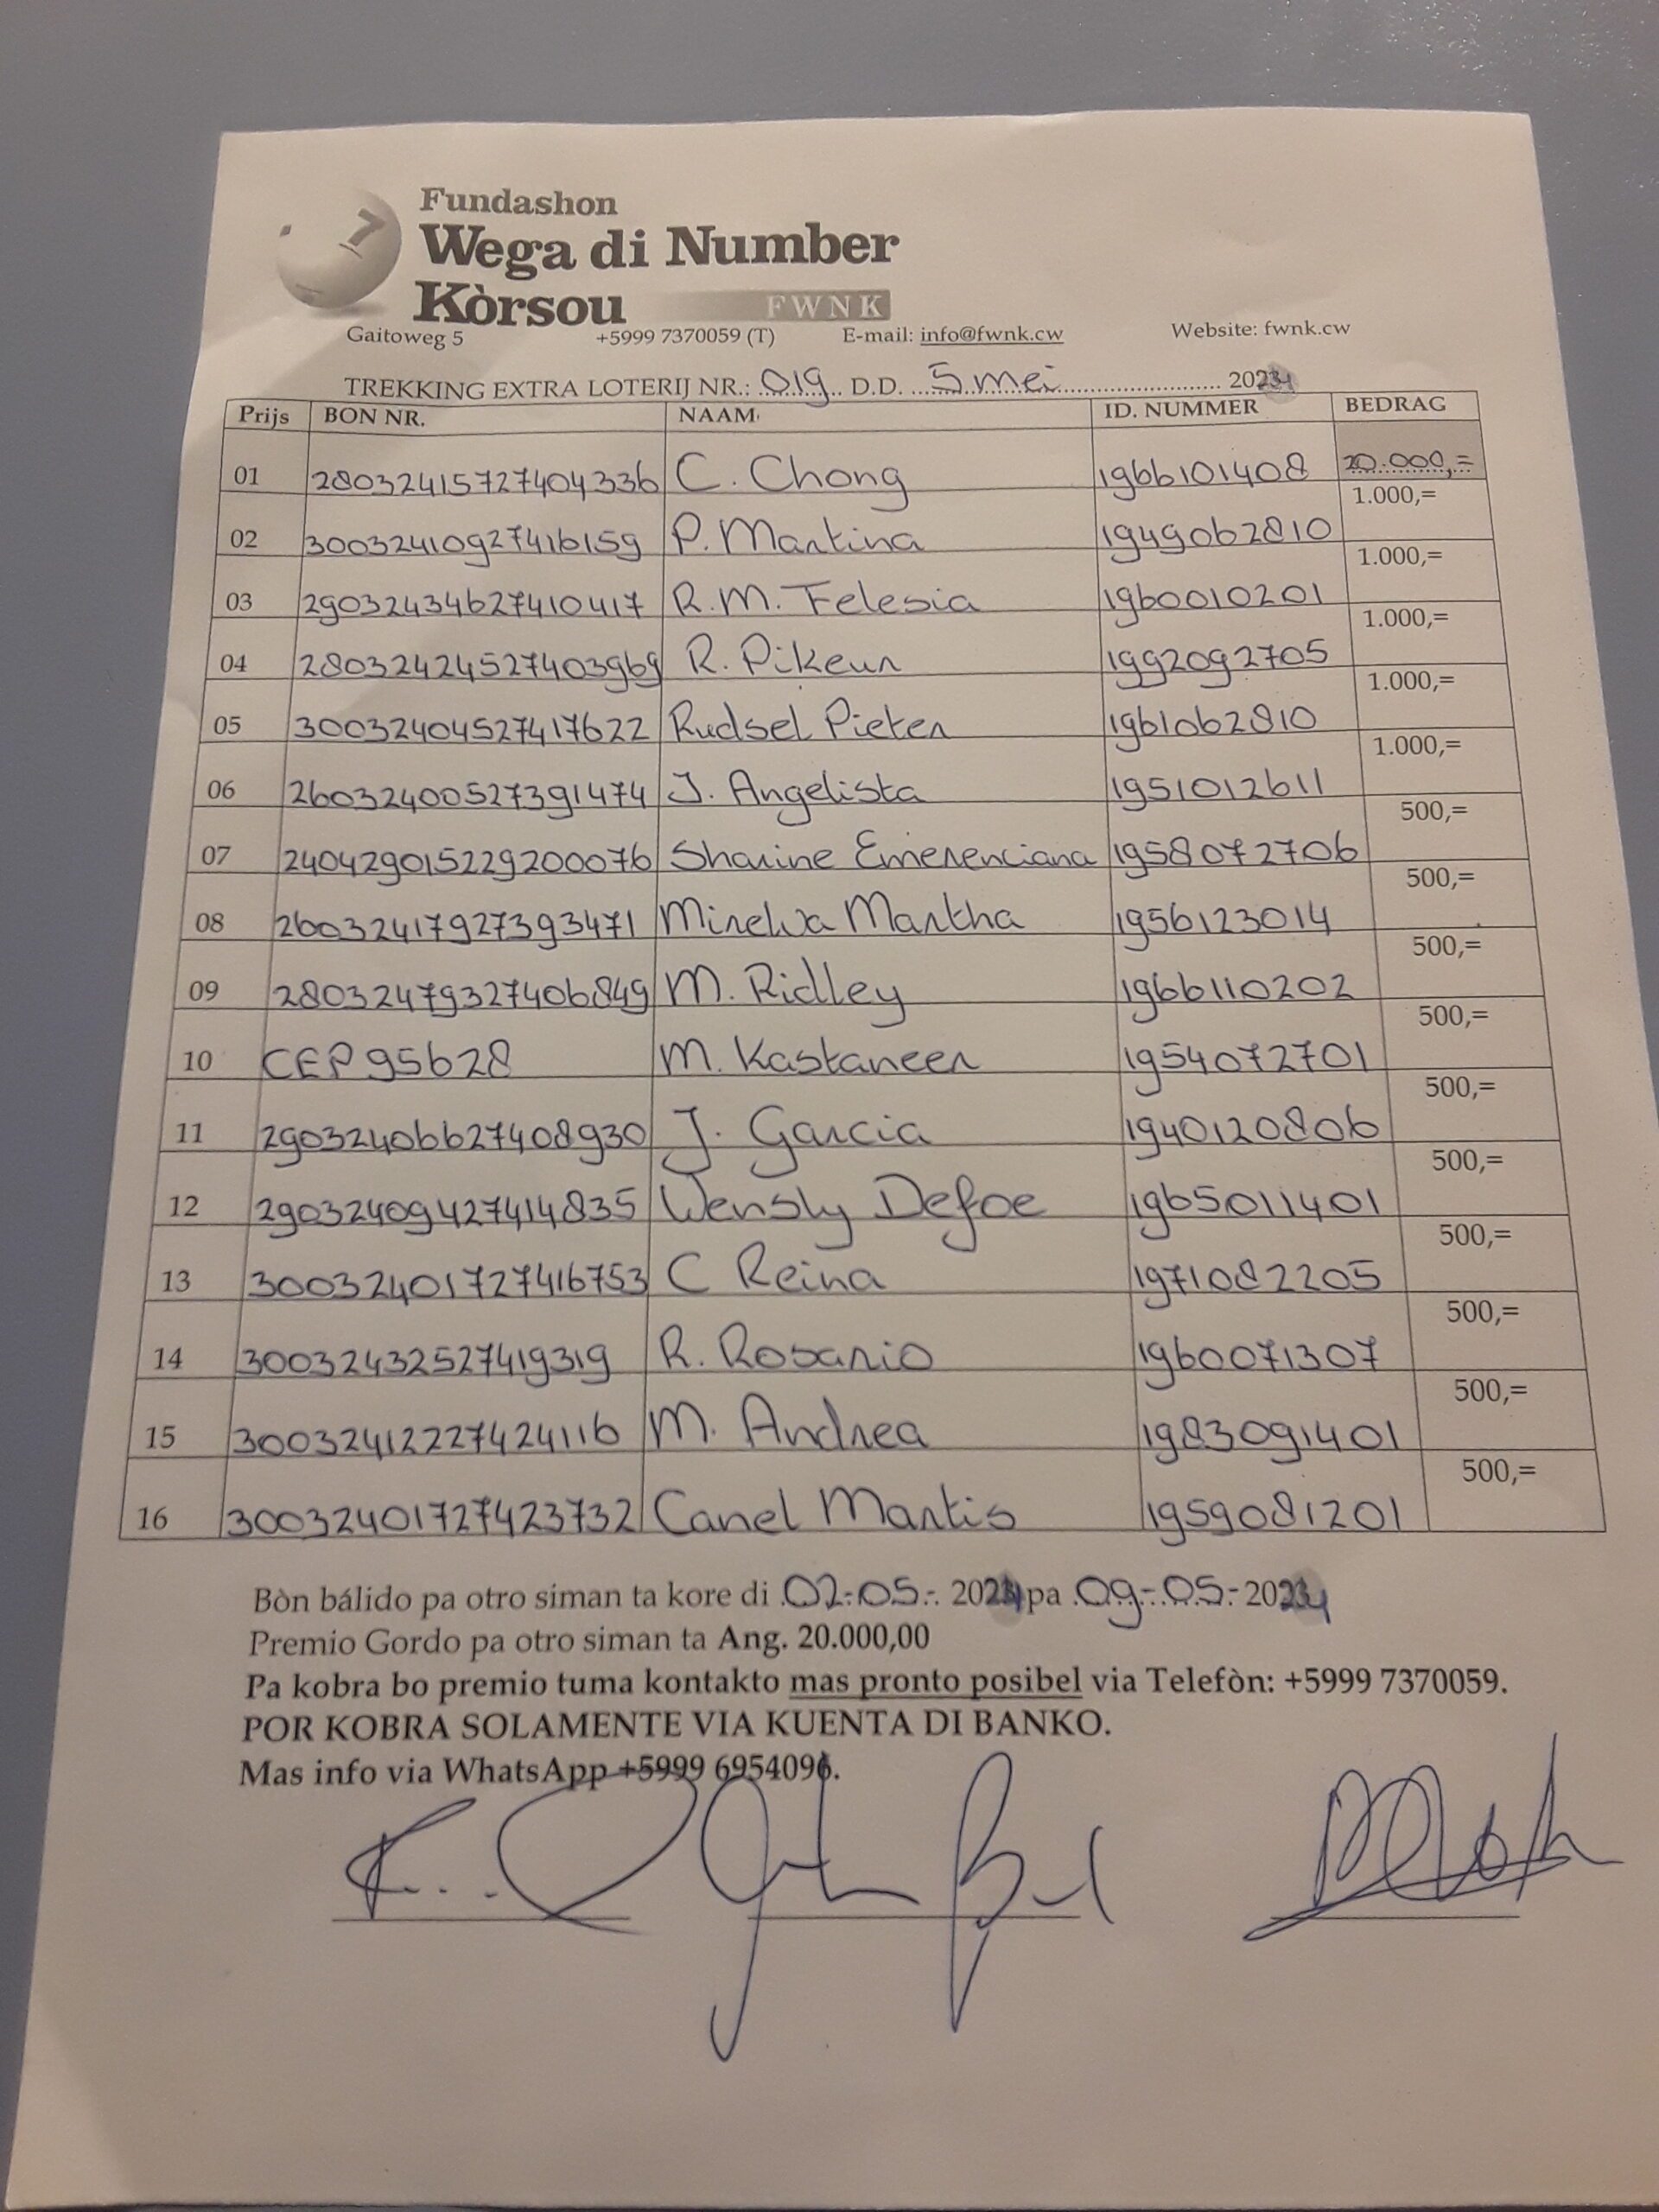 Fundashon
Wega di Number
Kòrsou FWNK
Gaitoweg 5 +5999 7370059 (T) E-mail: info@fwnk.cw Website: fwnk.cw
TREKKING EXTRA LOTERIJ NR.: 019 D.D. 5 mei 2024
Prijs BON NR. NAAM ID. NUMMER BEDRAG
01 28032415727404336 C. Chong 1966101408 20.000,=
02 30032410927416159 P. Martina 1949062810 1.000,=
03 29032434627410417 R.M. Felesia 1960010201 1.000,=
04 28032424527403969 R. Pikeur 1992092705 1.000,=
05 30032404527417622 Rudsel Pieter 1961062810 1.000,=
06 26032400527391474 J. Angelista 1951012611 1.000,=
07 24042901522920076 Sharine Emerenciana 1958072706 500,=
08 26032417927393471 Mirelva Martha 1956123014 500,=
09 28032479327406849 M. Ridley 1966110202 500,=
10 CEP95628 M. Kastaneer 1954072701 500,=
11 29032406627408930 J. Garcia 1940120806 500,=
12 29032409427414835 Wensly Defoe 1965011401 500,=
13 30032401727416753 C Reina 1971082205 500,=
14 30032432527419319 R. Rosario 1960071307 500,=
15 30032412227424116 M. Andrea 1983091401 500,=
16 30032401727423732 Carel Martis 1959081201 500,=
Bòn bálido pa otro siman ta kore di 02-05-2024 pa 09-05-2024
Premio Gordo pa otro siman ta Ang. 20.000,00
Pa kobra bo premio tuma kontakto mas pronto posibel via Telefòn: +5999 7370059.
POR KOBRA SOLAMENTE VIA KUENTA DI BANKO.
Mas info via WhatsApp +5999 6954096.